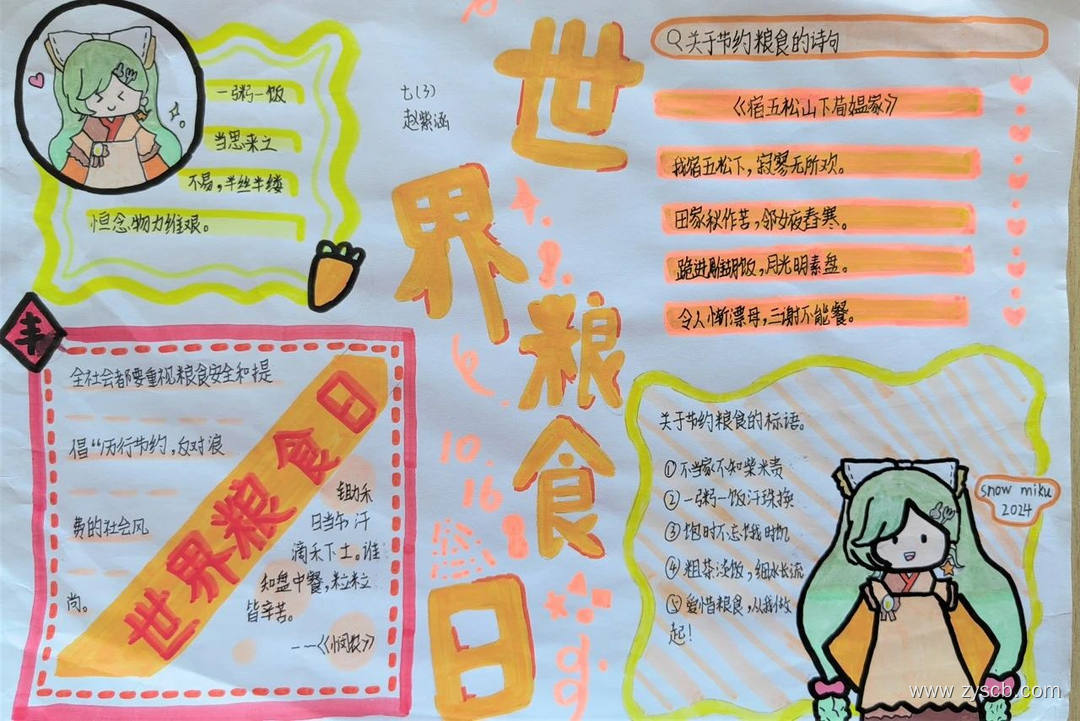 一粥一饭
当思来之
不易,半丝半缕
恒念物力维艰。
七(3)
赵紫涵
世界粮食日
10.16
关于节约粮食的诗句
《宿五松山下荀媪家》
我宿五松下,寂寥无所欢。
田家秋作苦,邻女夜舂寒。
跪进雕胡饭,月光明素盘。
令人惭漂母,三谢不能餐。
丰
全社会都要重视粮食安全和提
倡“厉行节约,反对浪
费的社会风
尚。
世界粮食日
锄禾
日当午,汗
滴禾下土。谁
知盘中餐,粒粒
皆辛苦。
——《悯农》
关于节约粮食的标语。
①不当家不知柴米贵
②一粥一饭汗珠换
③饱时不忘饿时饥
④粗茶淡饭,细水长流
⑤爱惜粮食,从我做
起!
snow miku
2024
www.zyscb.com